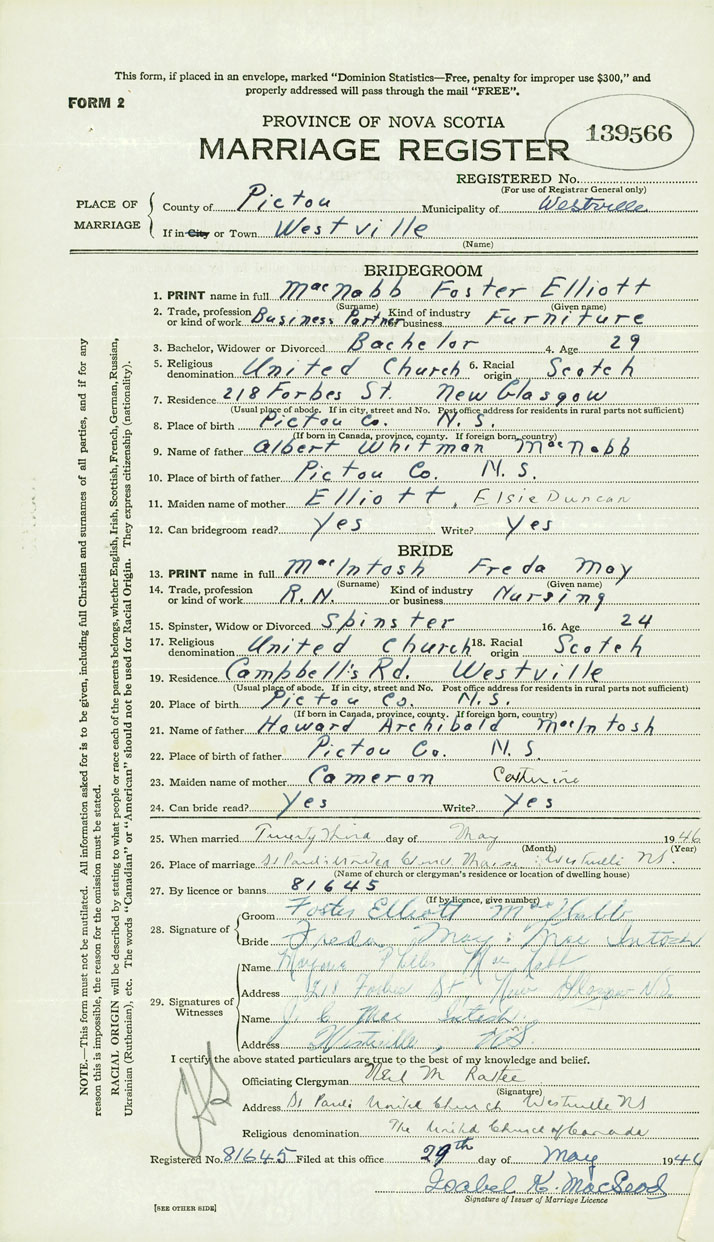 This form, if placed in an envelope, marked "Dominion Statistics—Free, penalty for improper use $300," and
properly addressed will pass through the mail "FREE".
FORM 2
PROVINCE OF NOVA SCOTIA
139566
MARRIAGE REGISTER
REGISTERED No.
(For use of Registrar General only)
PLACE OF MARRIAGE
County of Pictou Municipality of Westville
If in City or Town Westville
(Name)
BRIDEGROOM
1. PRINT name in full MacNabb Foster Elliott
(Surname) (Given name)
2. Trade, profession or kind of work Business Partner Kind of industry or business Furniture
3. Bachelor, Widower or Divorced Bachelor 4. Age 29
5. Religious denomination United Church 6. Racial origin Scotch
7. Residence 218 Forbes St. New Glasgow
(Usual place of abode. If in city, street and No. Post office address for residents in rural parts not sufficient)
8. Place of birth Pictou Co. N.S.
(If born in Canada, province, county. If foreign born, country)
9. Name of father Albert Whitman MacNabb
10. Place of birth of father Pictou Co. N.S.
11. Maiden name of mother Elliott, Elsie Duncan
12. Can bridegroom read? Yes Write? Yes
BRIDE
13. PRINT name in full MacIntosh Freda May
(Surname) (Given name)
14. Trade, profession or kind of work R.N. Kind of industry or business Nursing
15. Spinster, Widow or Divorced Spinster 16. Age 24
17. Religious denomination United Church 18. Racial origin Scotch
19. Residence Campbell's Rd. Westville
(Usual place of abode. If in city, street and No. Post office address for residents in rural parts not sufficient)
20. Place of birth Pictou Co. N.S.
(If born in Canada, province, county. If foreign born, country)
21. Name of father Howard Archibald MacIntosh
22. Place of birth of father Pictou Co. N.S.
23. Maiden name of mother Cameron Catherine
24. Can bride read? Yes Write? Yes
25. When married Twenty Third day of May 1946
(Month) (Year)
26. Place of marriage St Paul's United Church Manse : Westville NS.
(Name of church or clergyman's residence or location of dwelling house)
27. By licence or banns 81645
(If by licence, give number)
28. Signature of
Groom Foster Elliott MacNabb
Bride Freda May MacIntosh
29. Signatures of Witnesses
Name Phyllis MacNabb
Address 218 Forbes St, New Glasgow N.S.
Name MacIntosh
Address Westville, N.S.
I certify the above stated particulars are true to the best of my knowledge and belief.
Officiating Clergyman Neil M Rattee
(Signature)
Address St Paul's United Church Westville NS
Religious denomination The United Church of Canada
Registered No. 81645 Filed at this office 29th day of May 1946
Isabel K. MacLeod
Signature of Issuer of Marriage Licence
[SEE OTHER SIDE]
NOTE.—This form must not be mutilated. All information asked for is to be given, including full Christian and surnames of all parties, and if for any
reason this is impossible, the reason for the omission must be stated.
RACIAL ORIGIN will be described by stating to what people or race each of the parents belongs, whether English, Irish, Scottish, French, German, Russian,
Ukrainian (Ruthenian), etc. The words "Canadian" or "American" should not be used for Racial Origin. They express citizenship (nationality).